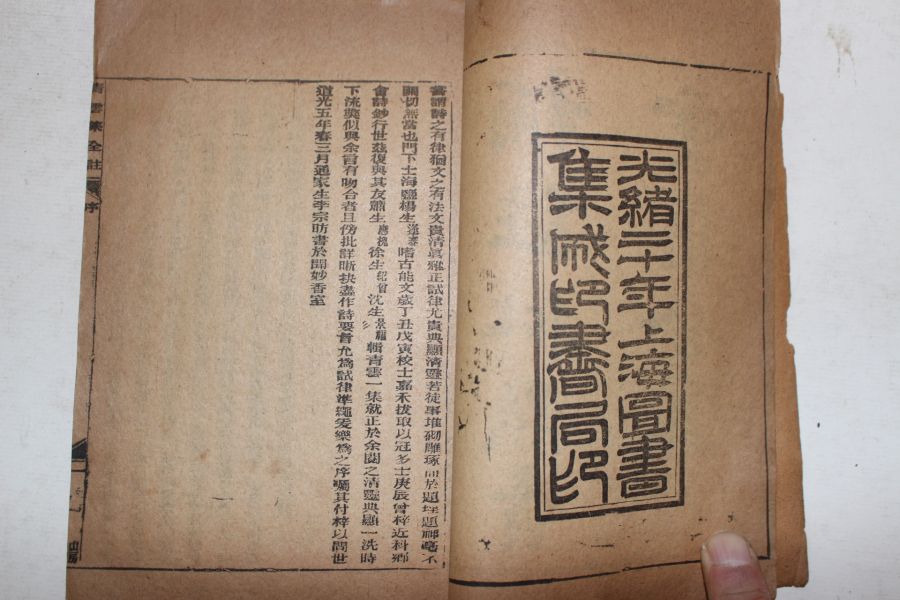 光緒二十年上海圖書
集成印書局印
嘗謂詩之有律猶文之有法文貴清真雅正試律尤貴典顯清靈若徒事堆砌雕琢於題題神毫不
關切無當也門下士海鹽楊生逢春嗜古能文歲丁丑戊寅校士嘉禾拔取以冠多士庚辰曾梓近科鄉
會詩鈔行世茲復與其友蕭生應槐徐生紹曾沈生景福輯青雲一集就正於余閱之清靈典顯一洗時
下流獎似與余言有吻合者且傍批詳晰抉盡作詩要旨允為試律準繩爰樂為之序囑其付梓以問世
道光五年春三月通家生李宗昉書於聞妙香室
青雲集全註
序